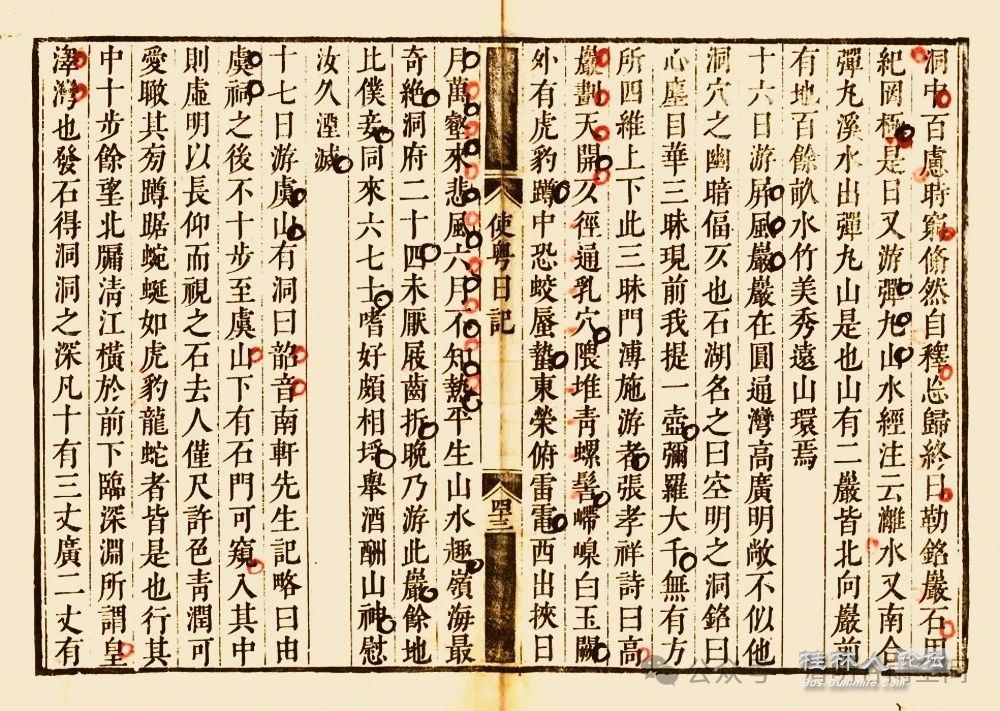 洞中百慮時窮翛然自釋忘歸終日勒銘巖石用
紀岡極是日又游彈丸山水經注云灕水又南合
彈丸溪水出彈丸山是也山有二巖皆北向巖前
有地百餘畝水竹美秀遠山環焉
十六日游屏風巖巖在圓通灣高廣明敞不似他
洞穴之幽暗偪仄也石湖名之曰空明之洞銘曰
心塵目華三昧現前我提一壺彌羅大千無有方
所四維上下此三昧門溥施游者張孝祥詩曰高
巖劃天開仄徑通乳穴隈堆青螺髻嵽嵲白玉闕
外有虎豹蹲中恐蛟蜃蟄東榮俯雷電西出挾日
使粵日記
四三
月萬壑來悲風六月不知熱平生山水趣嶺海最
奇絶洞府二十四未厭屐齒折晚乃游此巖餘地
比僕妾同來六七士嗜好頗相埒舉酒酬山神慰
汝久湮滅
十七日游虞山有洞曰韶音南軒先生記略曰由
虞祠之後不十步至虞山下有石門可窺入其中
則虛明以長仰而視之石去人僅尺許色青潤可
愛瞰其旁蹲踞蜿蜒如虎豹龍蛇者皆是也行其
中十步餘望北牖清江橫於前下臨深淵所謂皇
澤灣也發石得洞洞之深凡十有三丈廣二丈有
公众号
桂林人论坛
bbs.guilinlife.com